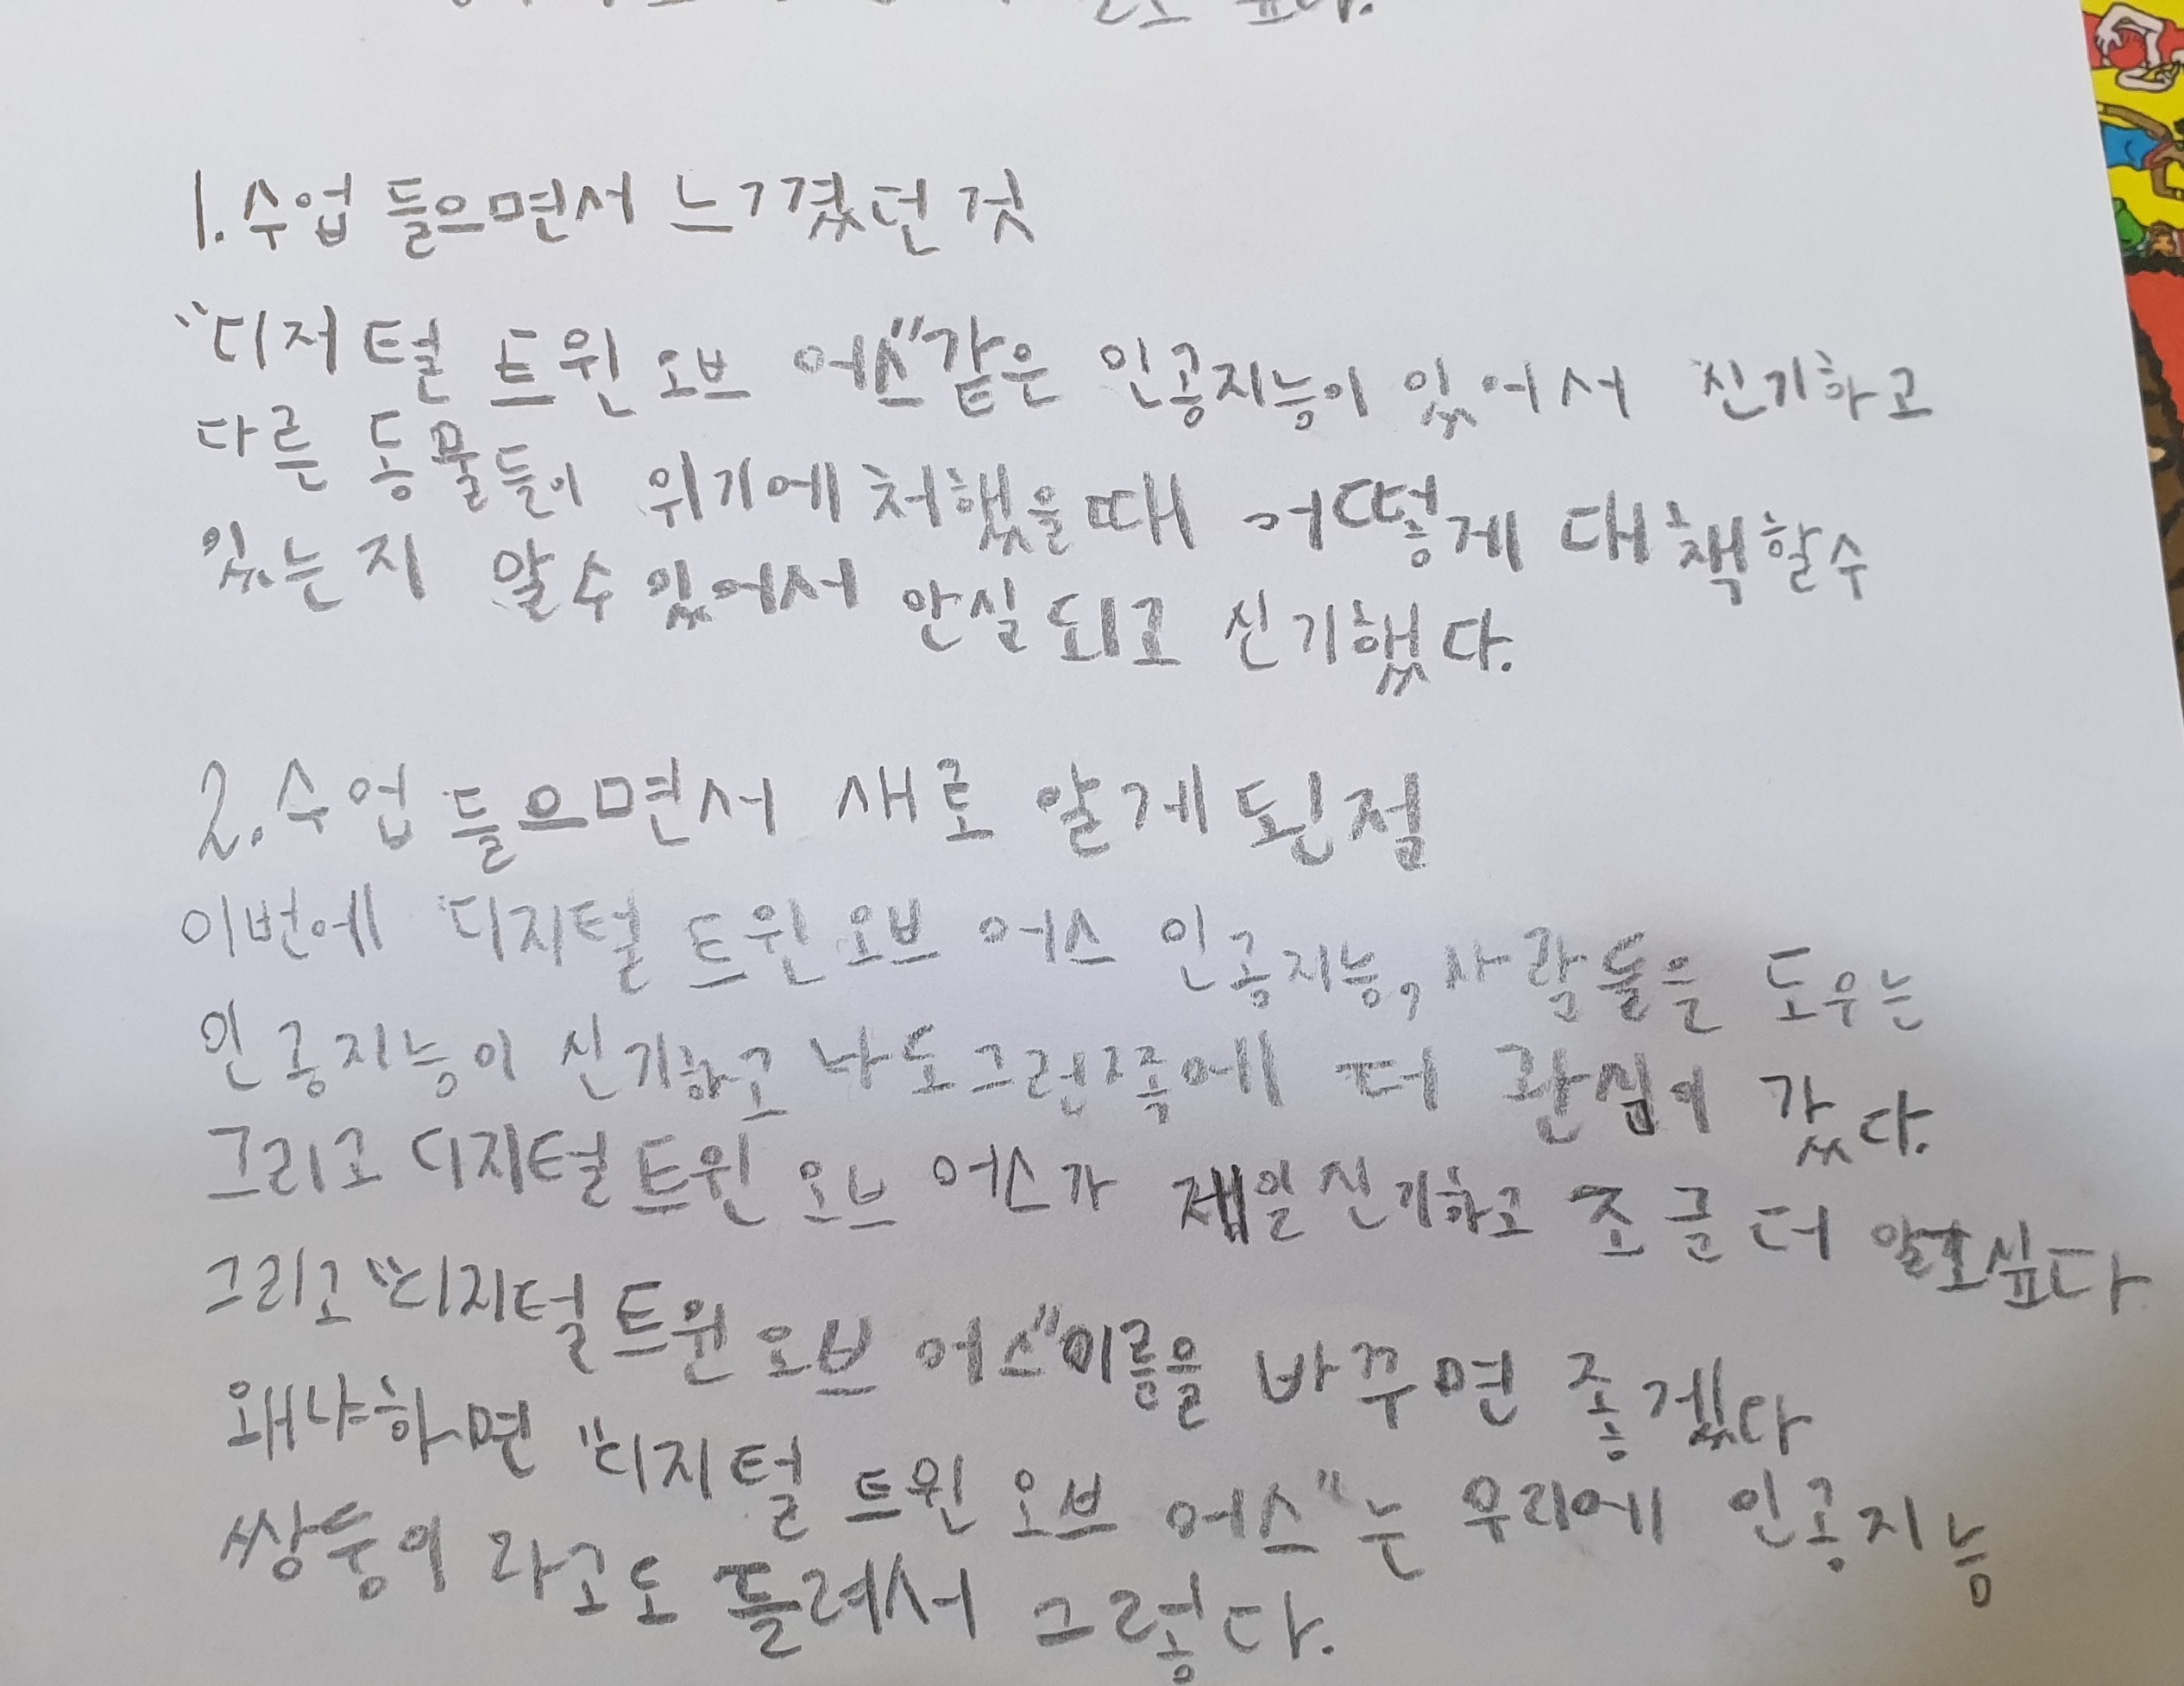 싶다.
1. 수업 들으면서 느기겼던 것
"디저털 트윈 오브 어스"같은 인공지능이 있어서 신기하고
다른 동물들이 위기에 처했을때 어떻게 대책할수
있는지 알수있어서 안심되고 신기했다.
2. 수업 들으면서 새로 알게된점
이번에 디지털 트윈오브 어스 인공지능, 사람들을 도우는
인공지능이 신기하고 나도그런쪽에 더 관심이 갔다.
그리고 디지털트윈 오브 어스가 제일신기하고 조금더 알고싶다
그리고"디지털트윈오브 어스"이름을 바꾸면 좋겠다
왜냐하면 "디지털 트윈 오브 어스"는 우리에 인공지능
쌍둥이 라고도 들려서 그렇다.